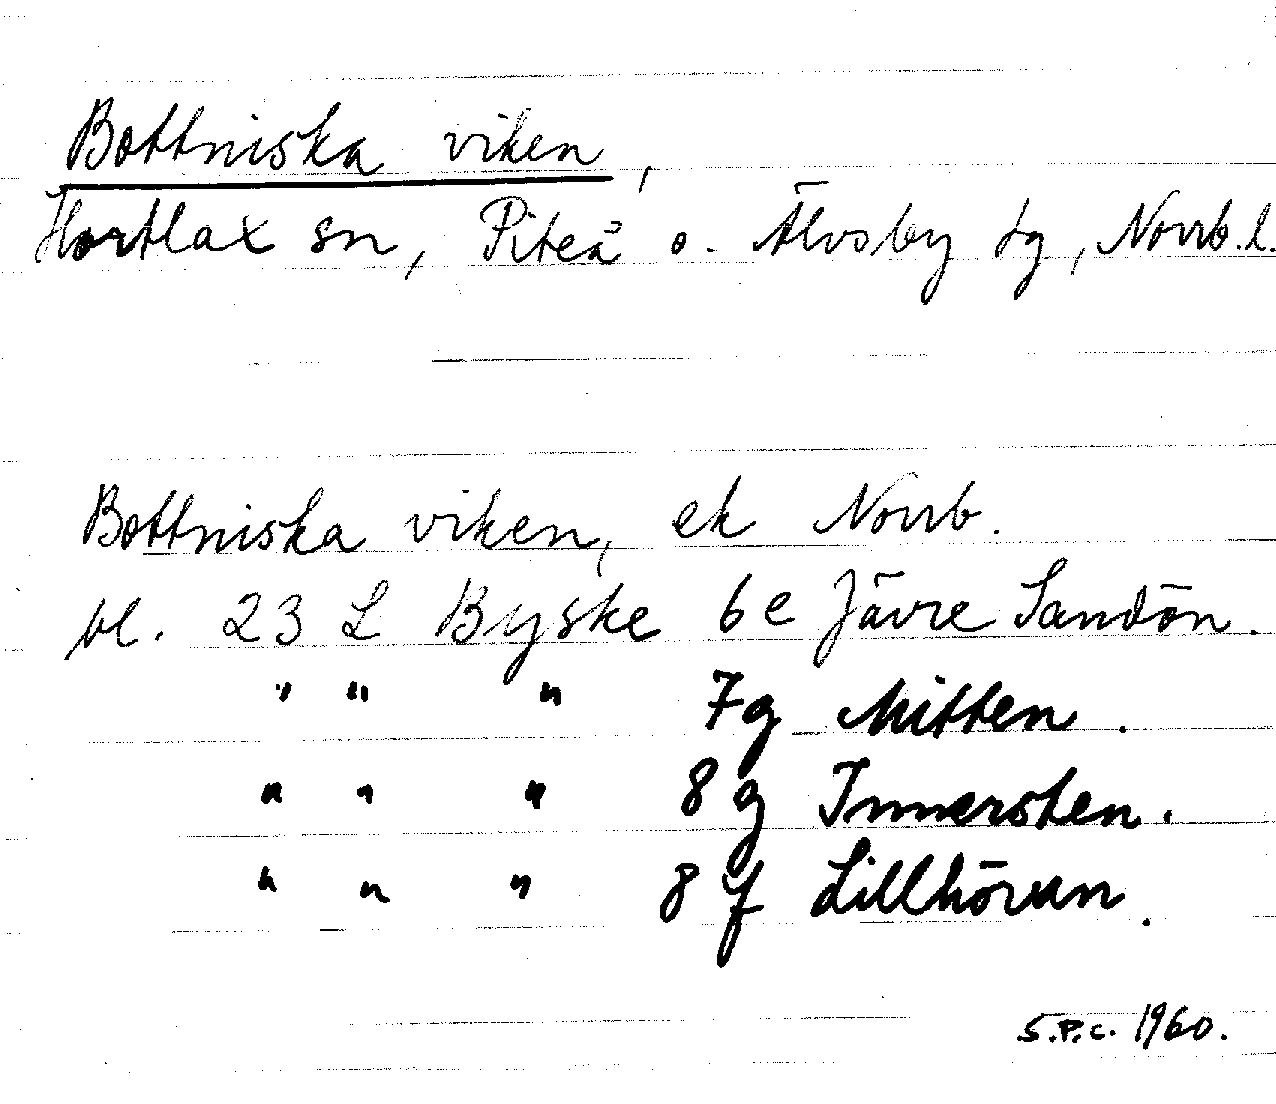 Bottniska viken,
Hortlax sn, Piteå o. Älvsby tg, Norrb.l.
Bottniska viken, ek Norrb.
bl. 23 L Byske 6e Jävre Sandön.
" " " 7g Mitten.
" " " 8g Innersten.
" " " 8f Lillhöran.
S.P.C. 1960.